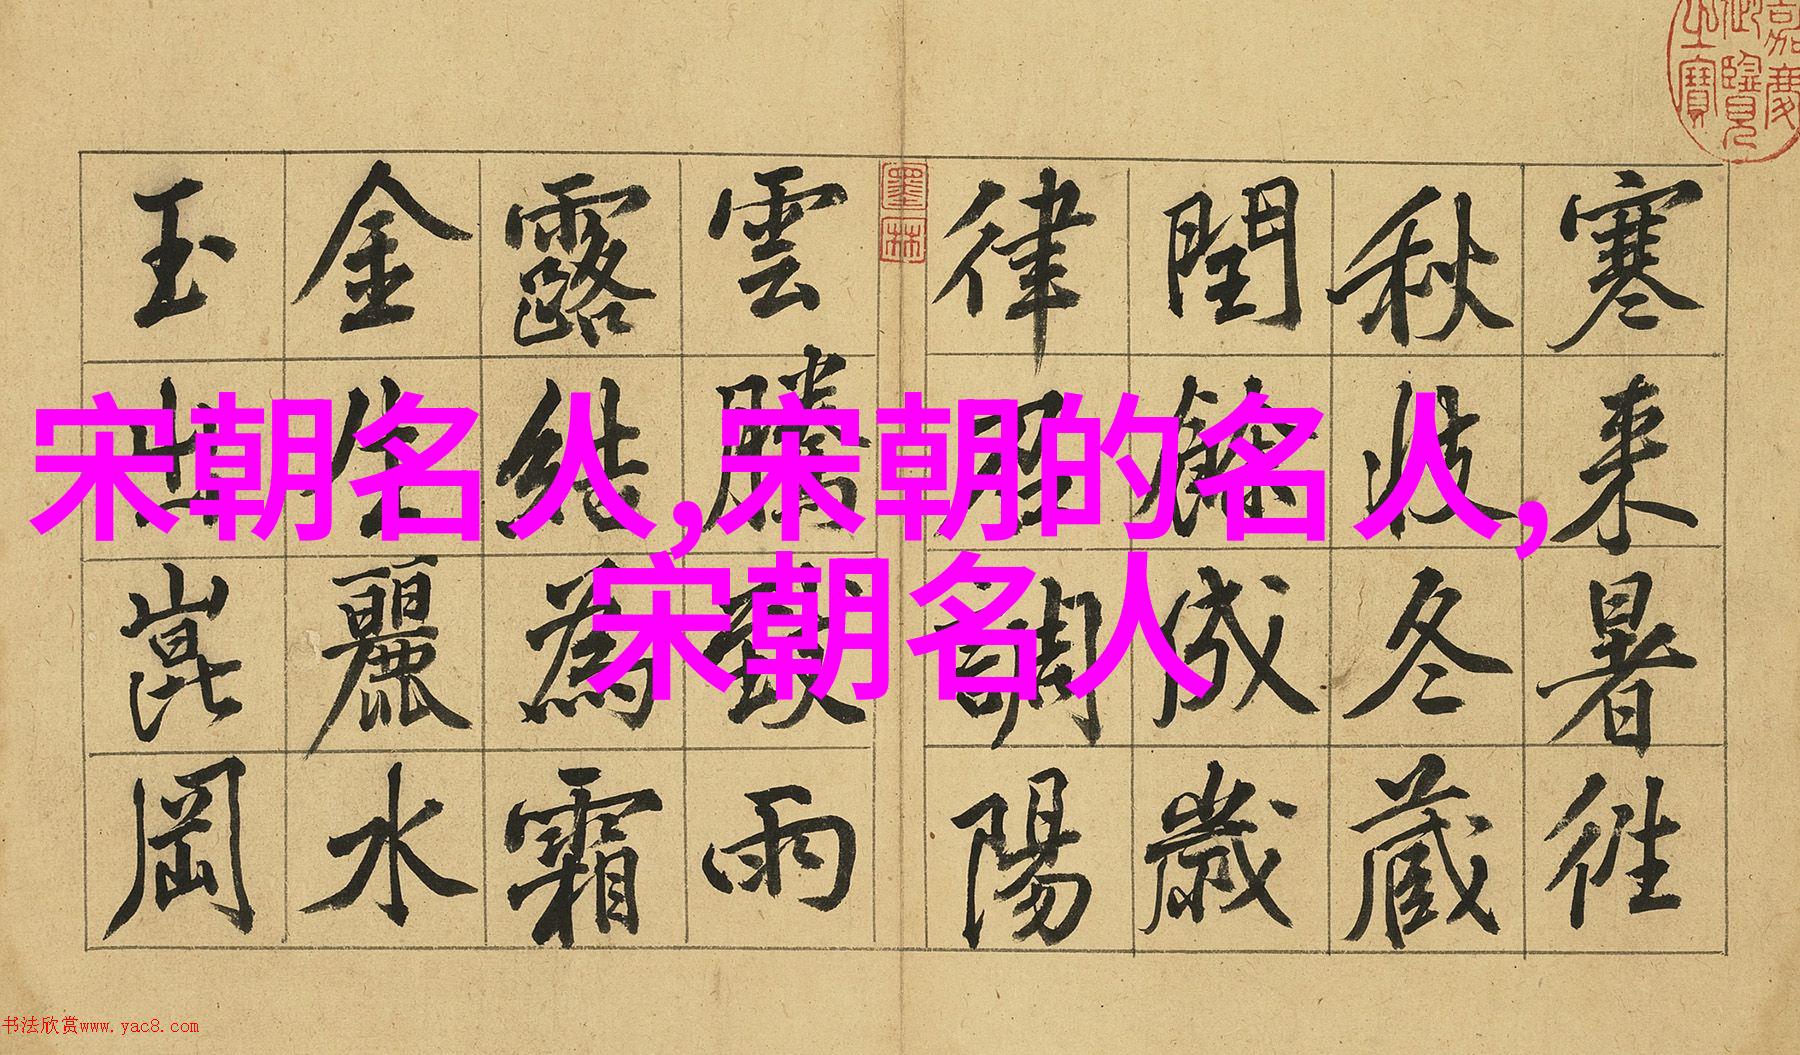 嘉慶
御覽
之寶
寒来暑往
秋收冬藏
閏餘成歲
律吕調陽
墨林
雲騰致雨
露結為霜
金生麗水
玉出崑岡
宋朝名人,宋朝的名人,
宋朝名人
书法欣赏www.yac8.com